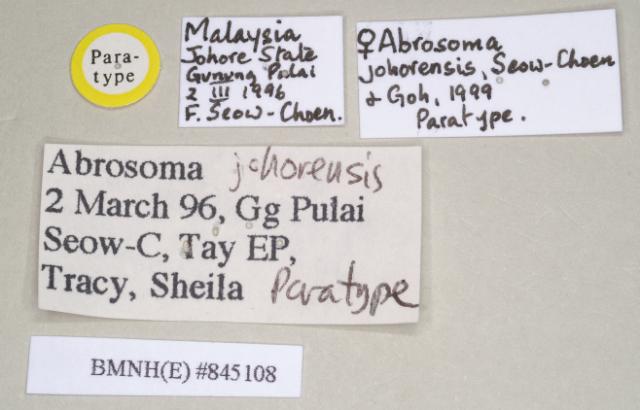 Para-
type
Malaysia
Johore State
Gunung Pulai
2 III 1996
F. Seow-Choen.
♀Abrosoma
johorensis, Seow-Choen
& Goh, 1999
Paratype.
Abrosoma johorensis
2 March 96, Gg Pulai
Seow-C, Tay EP,
Tracy, Sheila Paratype
BMNH(E) #845108